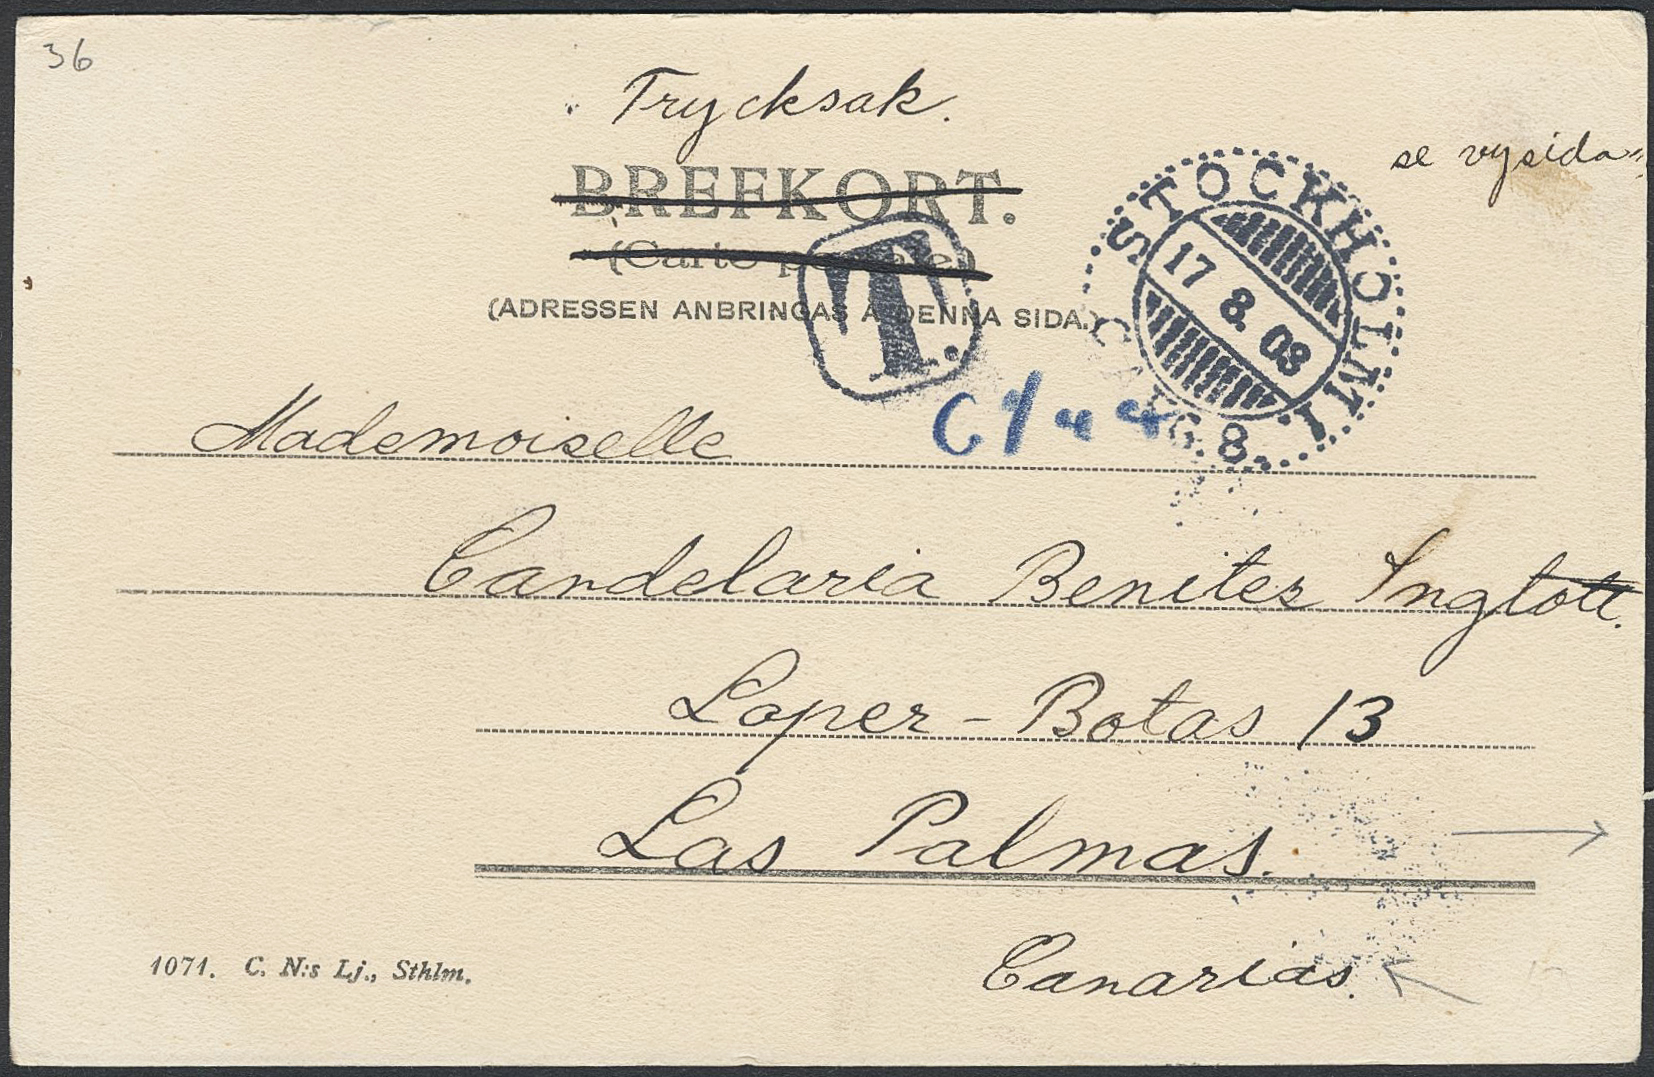 36
Trycksak.
se vysidan
BREFKORT.
(Carte postale)
(ADRESSEN ANBRINGAS Å DENNA SIDA.)
T.
STOCKHOLM 1
17 8. 08
8.
Mademoiselle
Candelaria Benitez Inglott.
Lopez-Botas 13
Las Palmas.
Canarias.
1071. C. N:s Lj., Sthlm.